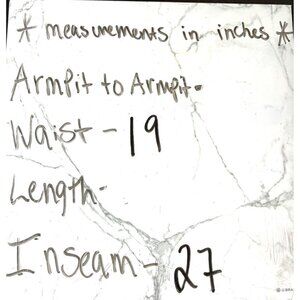 * measurements in inches *
Armpit to Armpit-
Waist - 19
Length-
Inseam - 27